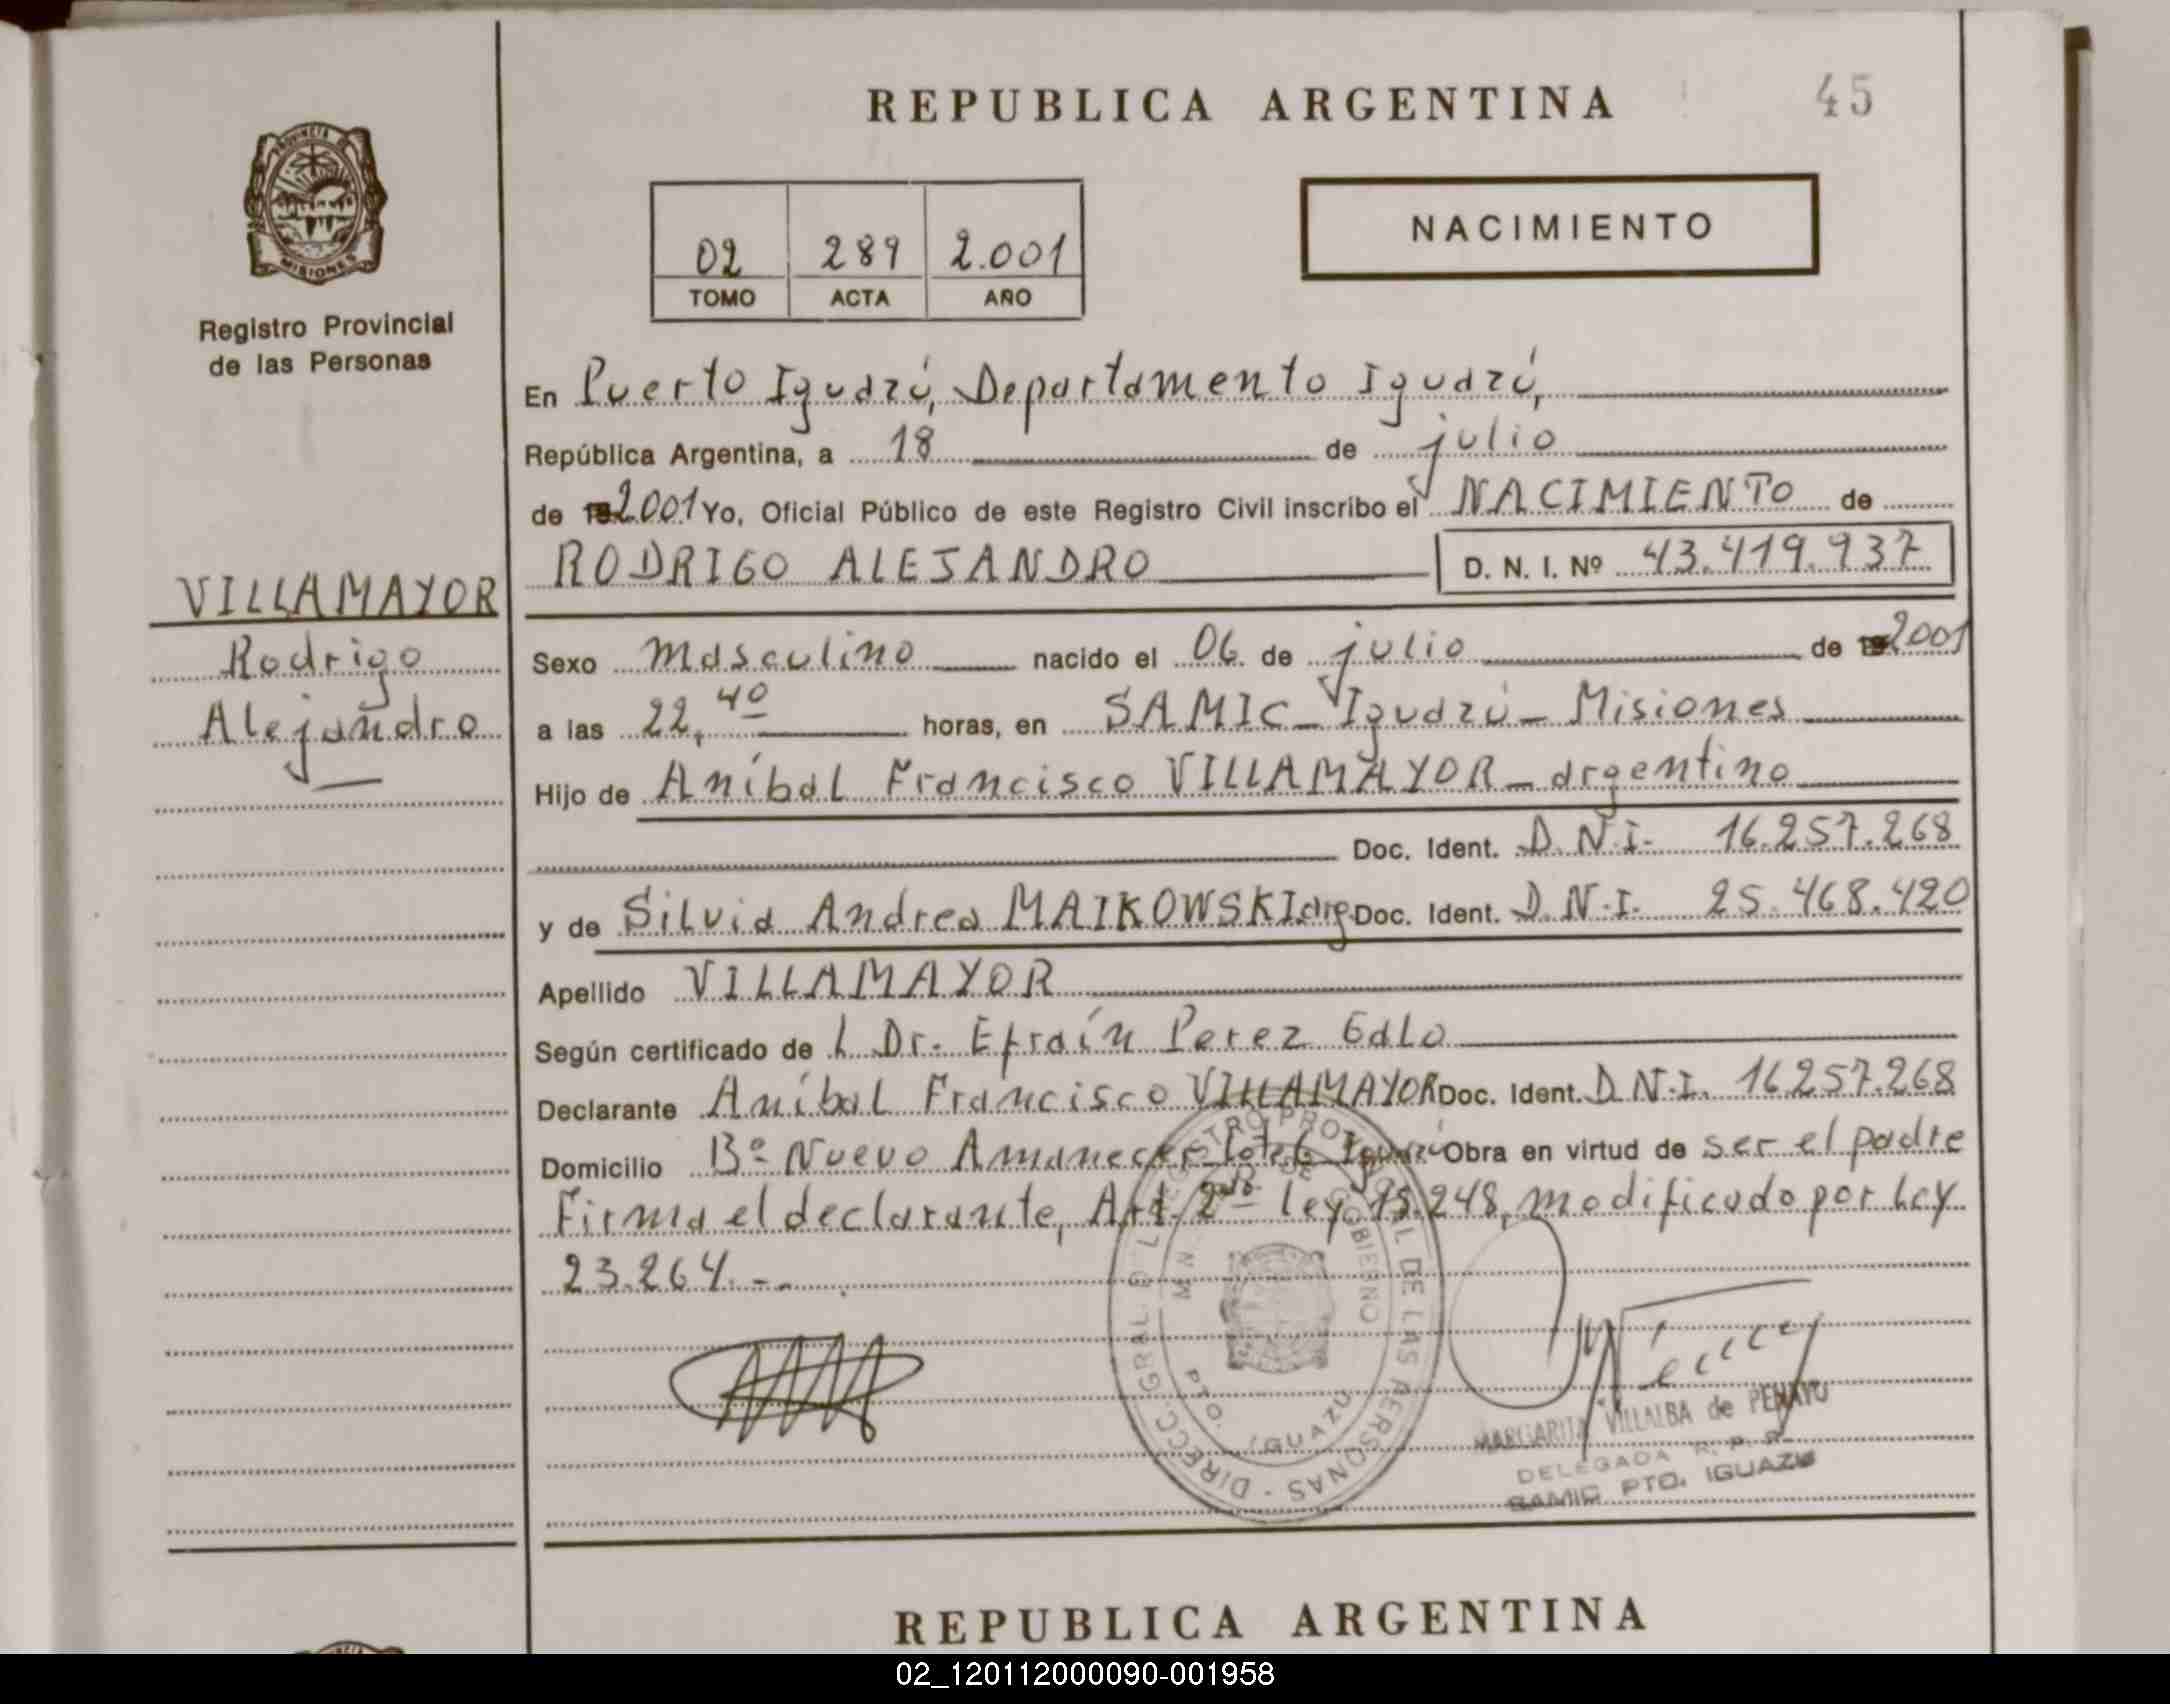 REPUBLICA ARGENTINA
45
PROVINCIA DE
MISIONES
Registro Provincial
de las Personas
02 289 2.001
TOMO ACTA AÑO
NACIMIENTO
En Puerto Iguazú, Departamento Iguazú,
República Argentina, a 18 de julio
de 2001 Yo, Oficial Público de este Registro Civil inscribo el NACIMIENTO de
RODRIGO ALEJANDRO D. N. I. Nº 43.419.937
VILLAMAYOR
Rodrigo
Alejandro
Sexo masculino nacido el 06 de julio de 2001
a las 22,40 horas, en SAMIC - Iguazú - Misiones
Hijo de Aníbal Francisco VILLAMAYOR - argentino
Doc. Ident. D.N.I. 16.257.268
y de Silvia Andrea MAIKOWSKI arg. Doc. Ident. D.N.I. 25.468.420
Apellido VILLAMAYOR
Según certificado de l Dr. Efraín Perez Galo
Declarante Aníbal Francisco VILLAMAYOR Doc. Ident. D.N.I. 16257.268
Domicilio Bº Nuevo Amanecer Lote 6 Iguazú Obra en virtud de ser el padre
Firma el declarante, Art. 2do ley 18.248, modificado por Ley
23.264.--
DIRECC. GRAL. D L REGISTRO PROVINCIAL DE LAS PERSONAS
MIN. DE GOBIERNO
PTO. IGUAZU
MARGARITA VILLALBA de PENAYO
DELEGADA R. P. P.
SAMIC PTO. IGUAZU
REPUBLICA ARGENTINA
02_120112000090-001958